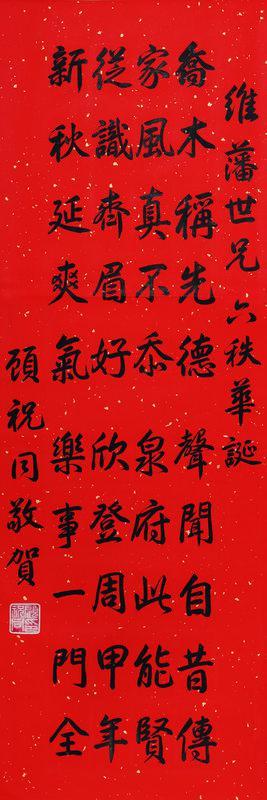 維藩世兄六秩華誕
喬木稱先德聲聞自昔傳
家風真不忝泉府此能賢
從識齊眉好欣登一周甲年
新秋延爽氣樂事一門全
顧祝同敬賀